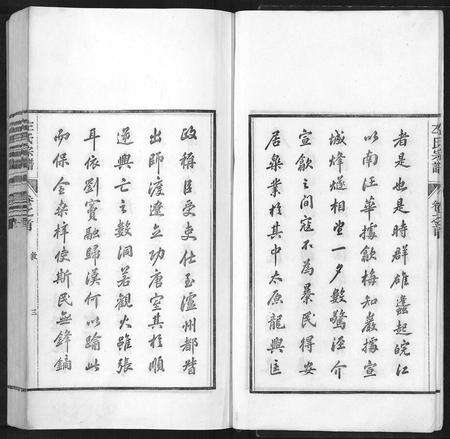 左氏宗譜
卷之首
者是也是時群雄蠭起皖江
以南汪華據歙梅知巖據宣
城烽燧相望一夕數驚涇介
宣歙之間寇不為暴民得安
居樂業於其中太原龍興匡
政稱臣受吏仕至瀘州都督
出師渡遼立功唐室其於順
逆興亡之數洞若觀火雖張
耳依劉竇融歸漢何以踰此
而保全桑梓使斯民無鋒鏑
左氏宗譜
卷之首
敘
三